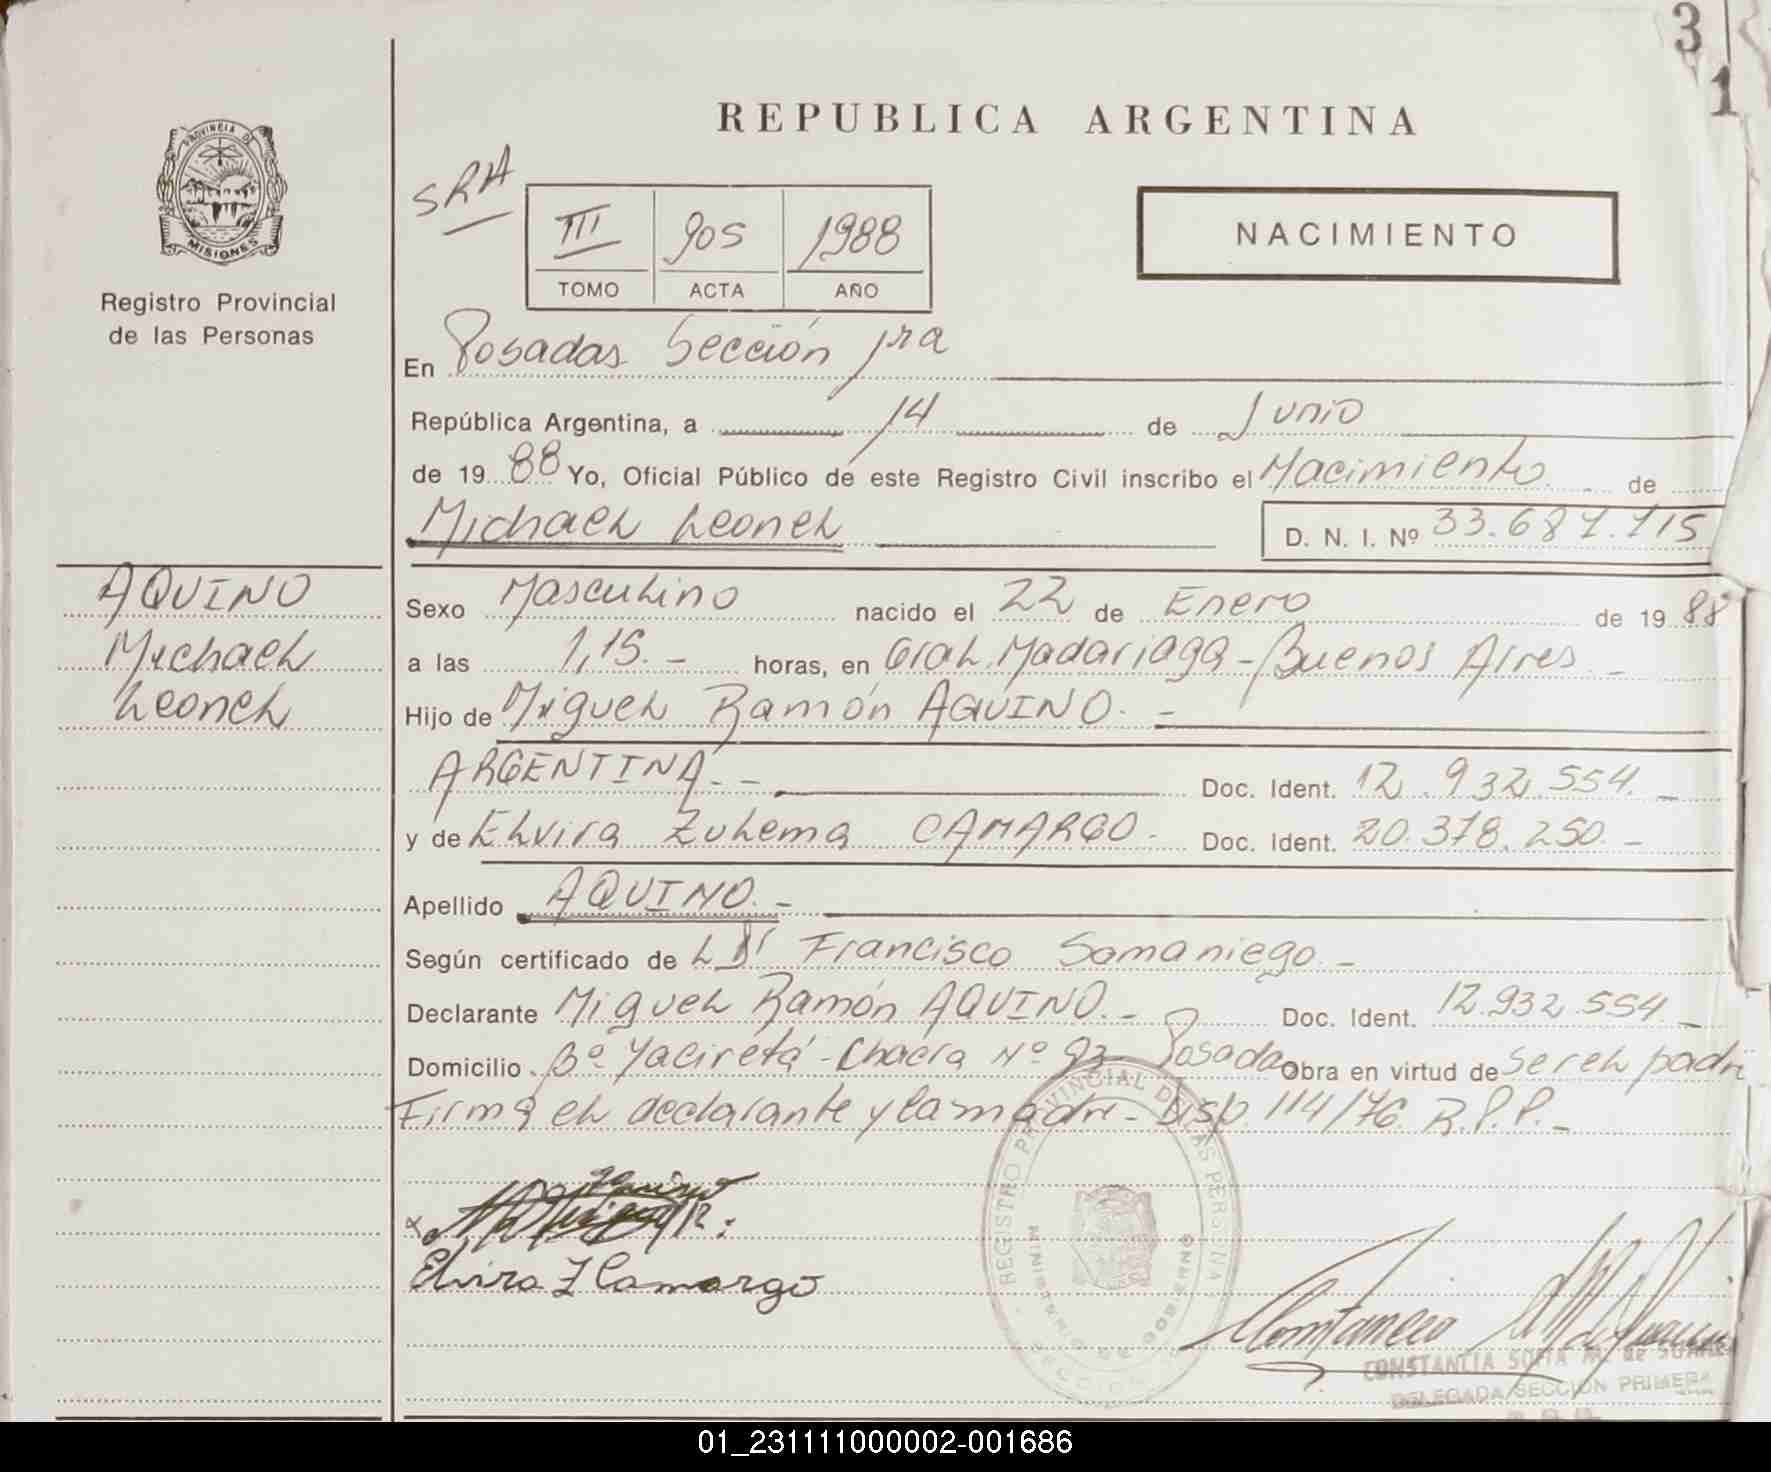 3
1
REPUBLICA ARGENTINA
PROVINCIA DE
MISIONES
Registro Provincial
de las Personas
SRA
III 905 1988
TOMO ACTA AÑO
NACIMIENTO
En Posadas Sección 1ra
República Argentina, a 14 de Junio
de 1988 Yo, Oficial Público de este Registro Civil inscribo el Nacimiento de
Michael Leonel D. N. I. Nº 33.687.715
AQUINO
Michael
Leonel
Sexo Masculino nacido el 22 de Enero de 1988
a las 1,15.- horas, en Gral. Madariaga - Buenos Aires -
Hijo de Miguel Ramón AQUINO. -
ARGENTINA. - Doc. Ident. 12.932.554. -
y de Elvira Zulema CAMARGO - Doc. Ident. 20.378.250. -
Apellido AQUINO. -
Según certificado de Francisco Samaniego. -
Declarante Miguel Ramón AQUINO. - Doc. Ident. 12.932.554. -
Domicilio Bº Yaciretá - Chacra Nº 93 - Posadas Obra en virtud de ser el padre
Firma el declarante y la madre - Disp. 114/76 R.P.P. -
Elvira Z Camargo
REGISTRO PROVINCIAL DE LAS PERSONAS
MINISTERIO DE GOBIERNO
CONSTANCIA SOFIA M. de
DELEGADA SECCION PRIMERA
01_231111000002-001686